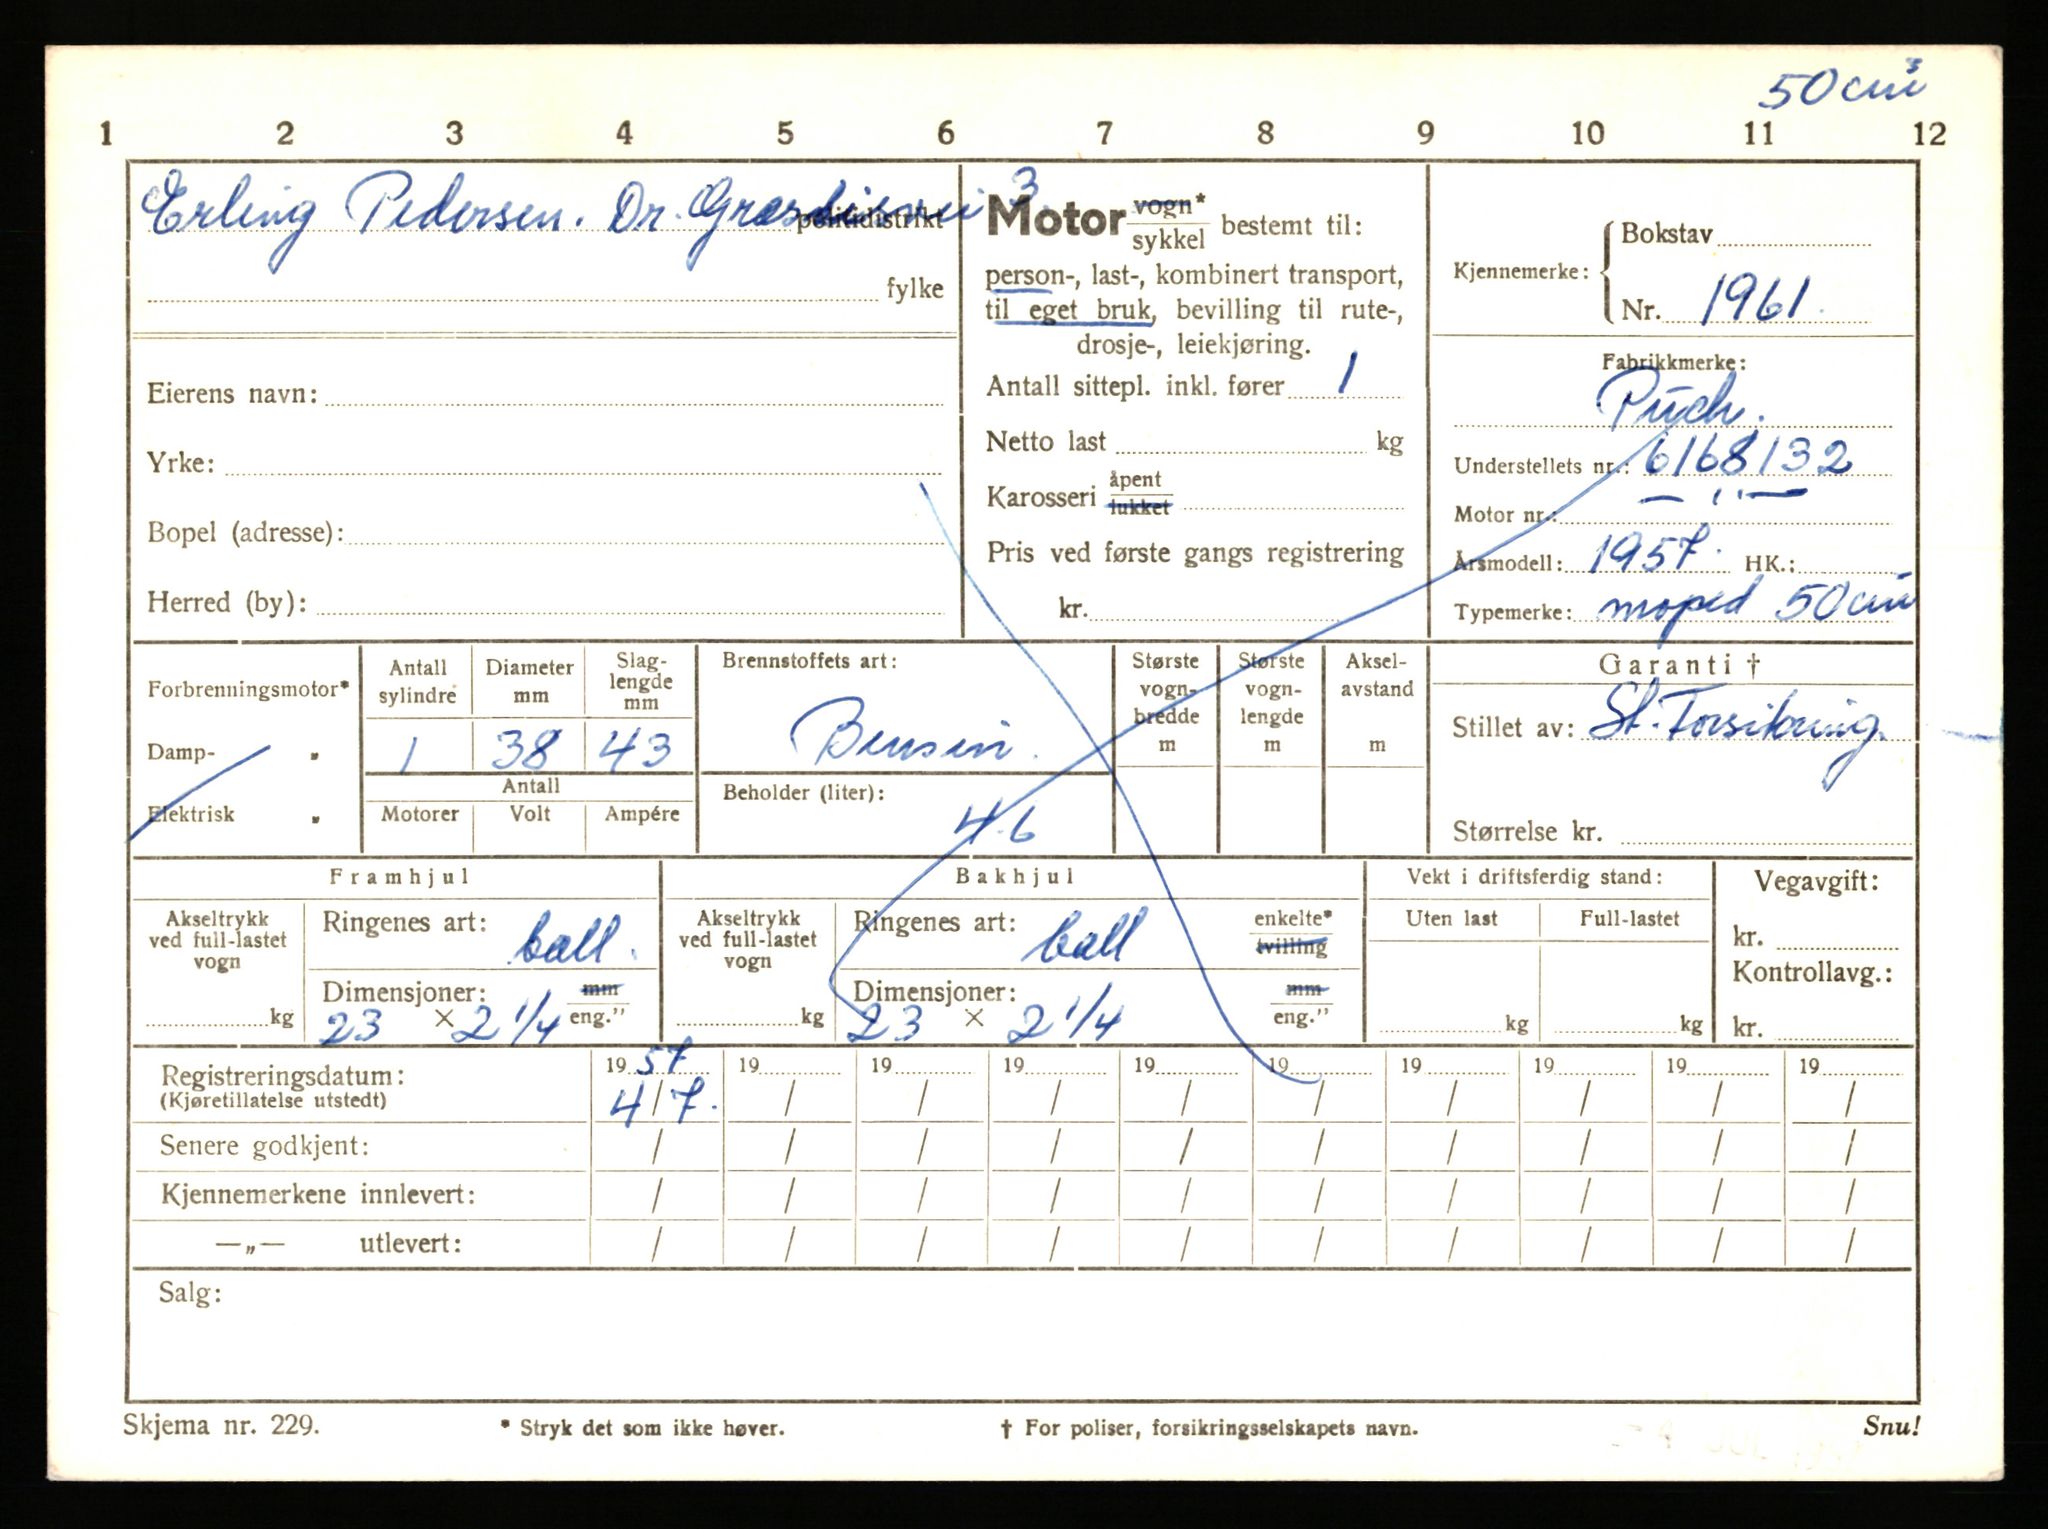 50 cm³
1 2 3 4 5 6 7 8 9 10 11 12
Erling Pedersen. Dr. 3.
politidistrikt
fylke
Eierens navn:
Yrke:
Bopel (adresse):
Herred (by):
Motor vogn* sykkel bestemt til:
person-, last-, kombinert transport,
til eget bruk, bevilling til rute-,
drosje-, leiekjøring.
Antall sittepl. inkl. fører 1
Netto last kg
Karosseri åpent lukket
Pris ved første gangs registrering
kr.
Kjennemerke: Bokstav
Nr. 1961.
Fabrikkmerke:
Puch.
Understellets nr.: 6168132
Motor nr.: — " —
Årsmodell: 1957. HK.:
Typemerke: moped 50 cm
Forbrenningsmotor*
Damp- "
Elektrisk "
Antall sylindre
Diameter mm
Slag-lengde mm
1 38 43
Antall
Motorer Volt Ampére
Brennstoffets art:
Bensin.
Beholder (liter):
4.6
Største vogn-bredde m
Største vogn-lengde m
Aksel-avstand m
Garanti †
Stillet av: St. Forsikring.
Størrelse kr.
Framhjul
Akseltrykk ved full-lastet vogn
kg
Ringenes art: ball.
Dimensjoner: mm
23 × 2 1/4 eng."
Bakhjul
Akseltrykk ved full-lastet vogn
kg
Ringenes art: ball enkelte* tvilling
Dimensjoner: mm
23 × 2 1/4 eng."
Vekt i driftsferdig stand:
Uten last Full-lastet
kg kg
Vegavgift:
kr.
Kontrollavg.:
kr.
Registreringsdatum: 19 57 19 19 19 19 19 19 19 19 19
(Kjøretillatelse utstedt) 4/7. / / / / / / / / /
Senere godkjent: / / / / / / / / / /
Kjennemerkene innlevert: / / / / / / / / / /
—„— utlevert: / / / / / / / / / /
Salg:
Skjema nr. 229. * Stryk det som ikke høver. † For poliser, forsikringsselskapets navn. Snu!